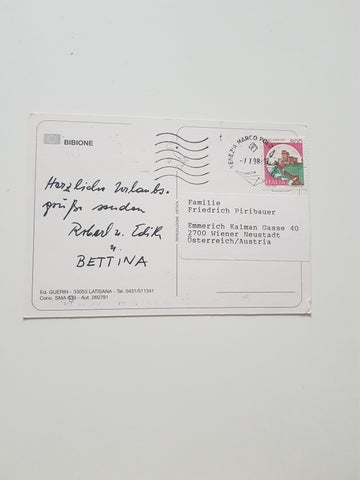 BIBIONE
VENEZIA MARCO PO
-7.7.98
Herzliche Urlaubs-
grüße senden
Robert u. Edith
u.
BETTINA
Familie
Friedrich Pirlbauer
Emmerich Kalman Gasse 40
2700 Wiener Neustadt
Österreich/Austria
Ed. GUERIN - 33053 LATISANA - Tel. 0431/511341
Conc. SMA 630 - Aut. 260791